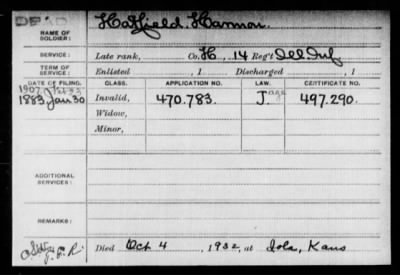 DEAD
Hatfield Harmon.
NAME OF SOLDIER:
SERVICE: Late rank, Co. H, 14 Reg't Ill Inf
TERM OF SERVICE: Enlisted , 1 Discharged , 1
DATE OF FILING. CLASS. APPLICATION NO. LAW. CERTIFICATE NO.
1907
1883 Jan 30 Invalid, 470.783. J. 497.290.
Widow,
Minor,
ADDITIONAL SERVICES:
REMARKS:
Died Oct 4, 1932, at Iola, Kans